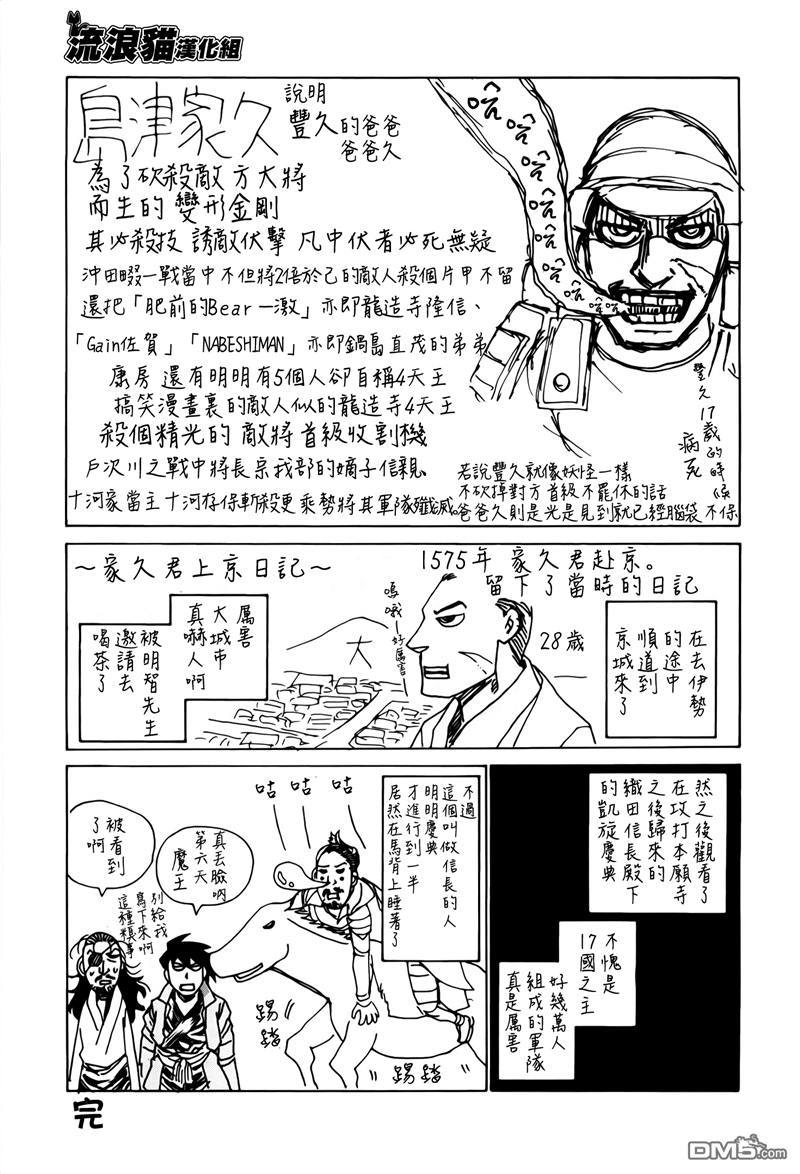 流浪貓漢化組
島津家久
說明
豐久的爸爸
爸爸久
為了砍殺敵方大將
而生的 變形金剛
其必殺技 誘敵伏擊 凡中伏者必死無疑
沖田畷一戰當中 不但將2倍於己的敵人殺個片甲不留
還把「肥前的Bear一激」亦即龍造寺隆信、
「Gain佐賀」「NABESHIMAN」亦即鍋島直茂的弟弟
康房 還有明明有5個人卻自稱4天王
搞笑漫畫裏的敵人似的龍造寺4天王
殺個精光的 敵將首級收割機
戶次川之戰中將長宗我部的嫡子信親、
十河家當主 十河存保斬殺更乘勢將其軍隊殲滅。
哈
哈
哈
哈
哈
哈
哈
豐久17歲的時候
病死
若說豐久就像妖怪一樣
不砍掉對方首級不罷休的話
爸爸久則是光是見到就已經腦袋不保
～家久君上京日記～
1575年 家久君赴京。
留下了當時的日記
在去伊勢
的途中
順道到
京城來了
28歲
嗚哦—好厲害—
大
厲害
大城市
真嚇人啊
被明智先生
邀請去
喝茶了
然之後觀看了
在攻打本願寺
之後歸來的
織田信長殿下
的凱旋慶典
不愧是
17國之主
好幾萬人
組成的軍隊
真是厲害
不過
這個叫做信長的人
明明慶典
才進行到一半
居然在馬背上睡著了
咕
咕
咕
踢踏
踢踏
真丟臉吶
第六天
魔王
別給我
寫下來啊
這種糗事
被看到
了啊
完
DM5.com